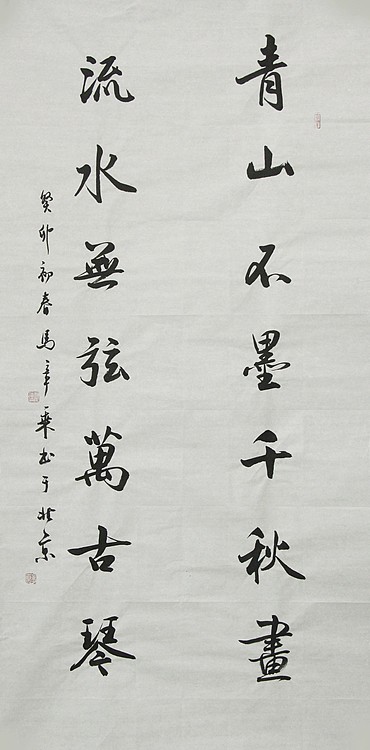 青山不墨千秋畫
流水無弦萬古琴
癸卯初春馬章乘书于北京